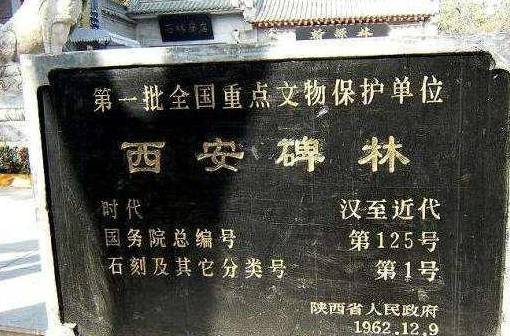 第一批全国重点文物保护单位
西安碑林
时代 汉至近代
国务院总编号 第125号
石刻及其它分类号 第1号
陕西省人民政府
1962.12.9